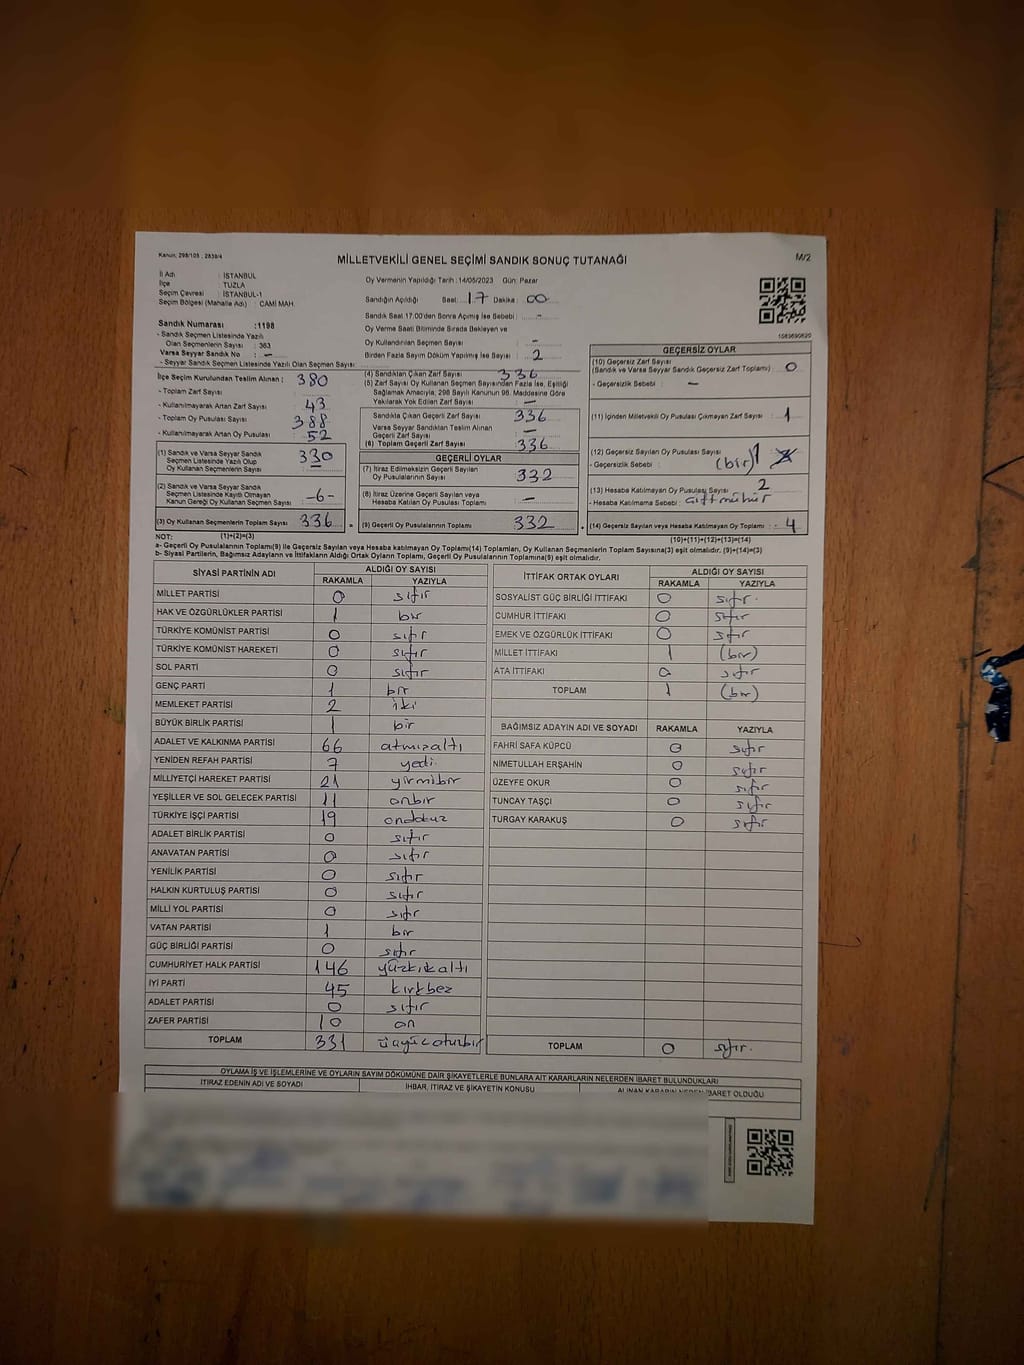 Kanun, 298/105 , 2839/4
MİLLETVEKİLİ GENEL SEÇİMİ SANDIK SONUÇ TUTANAĞI
M/2
İl Adı : İSTANBUL
İlçe : TUZLA
Seçim Çevresi : İSTANBUL-1
Seçim Bölgesi (Mahalle Adı) : CAMİ MAH.
Sandık Numarası :1198
- Sandık Seçmen Listesinde Yazılı
Olan Seçmenlerin Sayısı : 363
Varsa Seyyar Sandık No : -
- Seyyar Sandık Seçmen Listesinde Yazılı Olan Seçmen Sayısı:
Oy Vermenin Yapıldığı Tarih :14/05/2023 Gün: Pazar
Sandığın Açıldığı Saat: 17 Dakika : 00
Sandık Saat 17.00'den Sonra Açılmış İse Sebebi : -
Oy Verme Saati Bitiminde Sırada Bekleyen ve
Oy Kullandırılan Seçmen Sayısı : -
Birden Fazla Sayım Döküm Yapılmış İse Sayısı : 2
1589690820
İlçe Seçim Kurulundan Teslim Alınan ;
- Toplam Zarf Sayısı : 380
- Kullanılmayarak Artan Zarf Sayısı : 43
- Toplam Oy Pusulası Sayısı : 388
- Kullanılmayarak Artan Oy Pusulası : 52
(1) Sandık ve Varsa Seyyar Sandık
Seçmen Listesinde Yazılı Olup
Oy Kullanan Seçmenlerin Sayısı 330
(2) Sandık ve Varsa Seyyar Sandık
Seçmen Listesinde Kaydı Olmayan
Kanun Gereği Oy Kullanan Seçmen Sayısı -6-
(3) Oy Kullanan Seçmenlerin Toplam Sayısı : 336
(1)+(2)=(3)
(4) Sandıktan Çıkan Zarf Sayısı : 336
(5) Zarf Sayısı Oy Kullanan Seçmen Sayısından Fazla İse, Eşitliği
Sağlamak Amacıyla, 298 Sayılı Kanunun 98. Maddesine Göre
Yakılarak Yok Edilen Zarf Sayısı : -
Sandıkta Çıkan Geçerli Zarf Sayısı : 336
Varsa Seyyar Sandıktan Teslim Alınan
Geçerli Zarf Sayısı : -
(6) Toplam Geçerli Zarf Sayısı : 336
GEÇERLİ OYLAR
(7) İtiraz Edilmeksizin Geçerli Sayılan
Oy Pusulasının Sayısı : 332
(8) İtiraz Üzerine Geçerli Sayılan veya
Hesaba Katılan Oy Pusulası Sayısı : -
(9) Geçerli Oy Pusulalarının Toplamı : 332
GEÇERSİZ OYLAR
(10) Geçersiz Zarf Sayısı
(Sandık ve Varsa Seyyar Sandık Geçersiz Zarf Toplamı) : 0
- Geçersizlik Sebebi : -
(11) İçinden Milletvekili Oy Pusulası Çıkmayan Zarf Sayısı : 1
(12) Geçersiz Sayılan Oy Pusulası Sayısı : 1
- Geçersizlik Sebebi : (bir)
(13) Hesaba Katılmayan Oy Pusulası Sayısı : 2
- Hesaba Katılmama Sebebi : Çift mühür
(14) Geçersiz Sayılan veya Hesaba Katılmayan Oy Toplamı : 4
(10)+(11)+(12)+(13)=(14)
NOT:
a- Geçerli Oy Pusulalarının Toplamı(9) ile Geçersiz Sayılan veya Hesaba katılmayan Oy Toplamı(14) Toplamları, Oy Kullanan Seçmenlerin Toplam Sayısına(3) eşit olmalıdır. (9)+(14)=(3)
b- Siyasi Partilerin, Bağımsız Adayların ve İttifakların Aldığı Ortak Oyların Toplamı, Geçerli Oy Pusulalarının Toplamına(9) eşit olmalıdır.
SİYASİ PARTİNİN ADI ALDIĞI OY SAYISI
RAKAMLA YAZIYLA
MİLLET PARTİSİ 0 sıfır
HAK VE ÖZGÜRLÜKLER PARTİSİ 1 bir
TÜRKİYE KOMÜNİST PARTİSİ 0 sıfır
TÜRKİYE KOMÜNİST HAREKETİ 0 sıfır
SOL PARTİ 0 sıfır
GENÇ PARTİ 1 bir
MEMLEKET PARTİSİ 2 iki
BÜYÜK BİRLİK PARTİSİ 1 bir
ADALET VE KALKINMA PARTİSİ 66 atmışaltı
YENİDEN REFAH PARTİSİ 7 yedi
MİLLİYETÇİ HAREKET PARTİSİ 21 yirmibir
YEŞİLLER VE SOL GELECEK PARTİSİ 11 onbir
TÜRKİYE İŞÇİ PARTİSİ 19 ondokuz
ADALET BİRLİK PARTİSİ 0 sıfır
ANAVATAN PARTİSİ 0 sıfır
YENİLİK PARTİSİ 0 sıfır
HALKIN KURTULUŞ PARTİSİ 0 sıfır
MİLLİ YOL PARTİSİ 0 sıfır
VATAN PARTİSİ 1 bir
GÜÇ BİRLİĞİ PARTİSİ 0 sıfır
CUMHURİYET HALK PARTİSİ 146 yüzkırkaltı
İYİ PARTİ 45 kırkbeş
ADALET PARTİSİ 0 sıfır
ZAFER PARTİSİ 10 on
TOPLAM 331 üçyüzoturbir
İTTİFAK ORTAK OYLARI ALDIĞI OY SAYISI
RAKAMLA YAZIYLA
SOSYALİST GÜÇ BİRLİĞİ İTTİFAKI 0 sıfır
CUMHUR İTTİFAKI 0 sıfır
EMEK VE ÖZGÜRLÜK İTTİFAKI 0 sıfır
MİLLET İTTİFAKI 1 (bir)
ATA İTTİFAKI 0 sıfır
TOPLAM 1 (bir)
BAĞIMSIZ ADAYIN ADI VE SOYADI RAKAMLA YAZIYLA
FAHRİ SAFA KÜPCÜ 0 sıfır
NİMETULLAH ERŞAHİN 0 sıfır
ÜZEYFE OKUR 0 sıfır
TUNCAY TAŞÇI 0 sıfır
TURGAY KARAKUŞ 0 sıfır
TOPLAM 0 sıfır.
OYLAMA İŞ VE İŞLEMLERİNE VE OYLARIN SAYIM DÖKÜMÜNE DAİR ŞİKAYETLERLE BUNLARA AİT KARARLARIN NELERDEN İBARET BULUNDUKLARI
İTİRAZ EDENİN ADI VE SOYADI İHBAR, İTİRAZ VE ŞİKAYETİN KONUSU ALINAN KARARIN NEDEN İBARET OLDUĞU